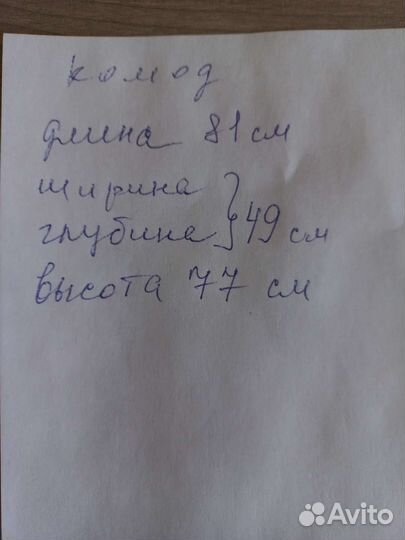 комод
длина 81 см
ширина
глубина } 49 см
высота 77 см
Avito